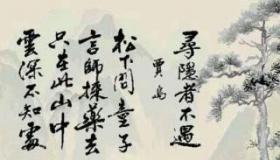 尋隱者不遇
賈島
松下問童子
言師採藥去
只在此山中
雲深不知處